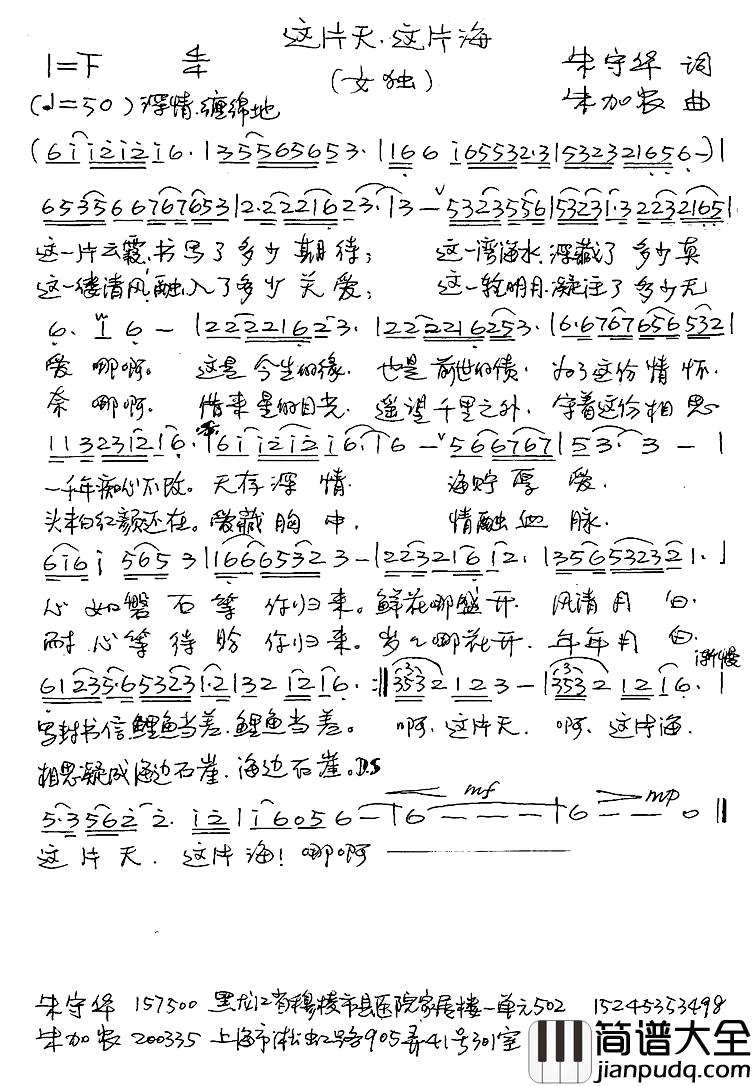 这片天.这片海
1=F 4/4 (女独) 朱守华 词
(♩=50) 深情.缠绵地 朱加农 曲
(6 i i2 i2 i6. | 3 5 5 6 5 6 5 3. | 1 6 6 i 6 5 5 3 2. 3 | 5 3 2 3 2 1 6 5 6 -) |
6 5 3 5 6 6 7 6 7 6 5 3 | 2. 2 2 2 1 6 2 3. | 3 - 5 3 2 3 5 5 6 | 5 3 2 3 1. 3 2 2 3 2 1 6 5 |
这一片云霞,书写了多少期待; 这一湾海水,深藏了多少真
这一缕清风,融入了多少关爱; 这一轮明月,凝注了多少无
6. 1 6 - | 2 2 2 2 2 1 6 2 3. | 2 2 2 2 1 6 2 5 3. | 6. 6 7 6 7 6 5 6 5 3 2 |
爱哪啊。这是今生的缘,也是前世的债,为了这份情怀.
奈哪啊.借来星的目光,遥望千里之外,守着这份相思
1 1 3 2 3 1 2 1 6. | 6 i i 2 i 2 i 6. i | 6 - 5 6 6 7 6 7 | 5 3. 3 - |
一千年痴心不改。天存深情 海贮厚爱.
头未白红颜还在。爱藏胸中. 情融血脉.
6 i 6 i 5 6 5 3 | 1 6 6 6 5 3 2 3 - | 2 2 3 2 1 6 1 2. | 3 5 6 5 3 2 3 2 1. |
心如磐石等你归来。鲜花哪盛开.风清月白.
耐心等待盼你归来。岁岁哪花开.年年月白. 渐慢
6 1 2 3 5. 6 5 3 2 3 1. 2 | 3 2 1 2 1 6. :‖ 3 5 3 2 1 2 3 - | 3 5 3 2 1 2 1 6. |
写封书信鲤鱼当差.鲤鱼当差。啊.这片天.啊.这片海.
相思凝成海边石崖.海边石崖。D.S
mf mp
5. 3 5 6 2 2. i 2 | i 6 0 5 6 - | 6 - - - | 6 - - 0 ‖
这片天.这片海!哪啊
朱守华 157500 黑龙江省穆棱市县医院家属楼一单元502 15245353498
朱加农 200335 上海市淞虹路905弄41号301室
简谱大全
jianpudq.com